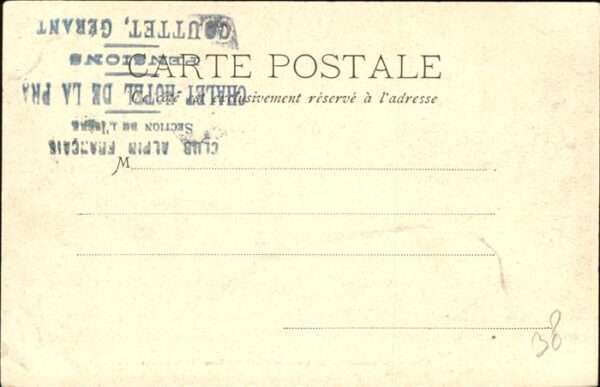 CARTE POSTALE
Ce côté est exclusivement réservé à l'adresse
M
CLUB ALPIN FRANÇAIS
SECTION DE L'ISÈRE
CHALET HOTEL DE LA PRA
PENSIONS
GOUTTET, GÉRANT
38